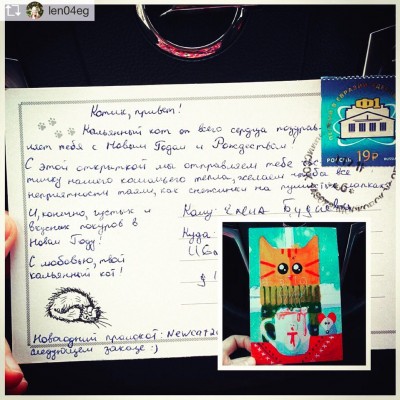 len04eg
Котик, привет!
Кальянный кот от всего сердца поздрав-
ляет тебя с Новым Годом и Рождеством!
С этой открыткой мы отправляем тебе
тичку нашего кошачьего тепла, желаем чтоба все
неприятности таяли, как снежинки на пушистых лапках
И, конечно, густых и
вкусных покуров в
Новом Году!
С любовью, твой
кальянный кот!
Кому: Елена
Куда:
РОССИЯ 19₽
Новогодний промокод: Newcat20
следующем заказе :)